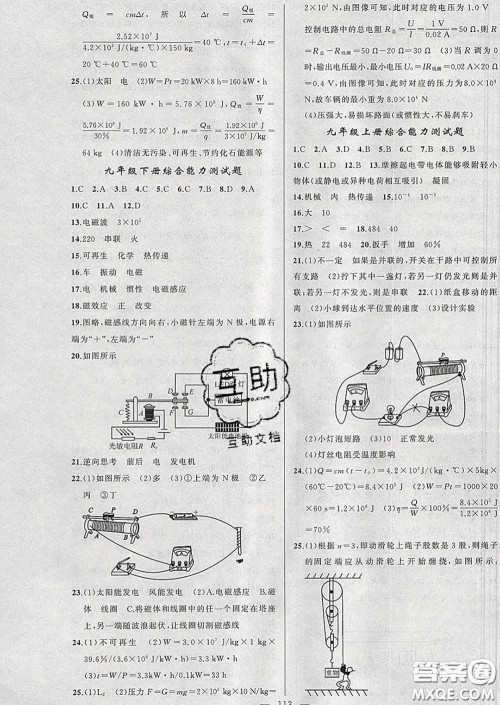 Q吸=cmΔt，所以Δt=Q吸/cm=
2.52×10⁷J/4.2×10³J/(kg·℃)×150kg=40℃，t=
20℃+40℃=60℃
25.(1)太阳 电 (2)W=Pt=20kW×8h=160kW·h
(3)W=160kW·h=5.76×10⁸J Q放=W/η=
5.76×10⁸J/30%=1.92×10⁹J m=Q放/q=1.92×10⁹J/3×10⁷J/kg=
64kg (4)清洁无污染、可再生、节约化石能源
九年级下册综合能力测试题
1.C 2.A 3.B 4.C 5.C 6.C 7.B 8.D 9.A
10.C 11.D 12.C
13.电磁波 3×10⁵
14.220 串联 火
15.可再生 化学 热传递
16.车 振动 电磁
17.电 机械 惯性 电磁感应
18.磁效应 正 改变
19.图略，磁感线方向向右，小磁针左端为N极，电源右
端为“+”，左端为“－”
20.如图所示
光敏电阻R R₀ 太阳能
21.逆向思考 前后 电 发电机
22.(1)如图所示 (2)多 (3)A (4)上端为N极 ②乙
丙 ③丁
23.(1)太阳能发电 风能发电 (2)A.电磁感应 B.磁
体 线圈 C.将磁体和线圈中的任一个固定在塔座
上，另一端随波浪起伏，让线圈切割磁感线
24.(1)不可再生 (2)W=3.0×10⁷J/kg×1kg×
39.6%/(3.6×10⁶J/kW·h)=3.3kW·h
(3)t=W/P=3.3h
25.(1)L₂ (2)压力F=G=mg=2×10⁴kg×10N/kg=
2 A，由图像可知，此时对应的电压为1.0V
控制电路中的总电阻R总=U/I=1V/0.02A=50Ω，
则R=R总－R线圈=50Ω－30Ω=20Ω (3)当R调为0
时，输出电压最小，最小电压U=IR线圈=0.02A×20Ω
=0.4V，由图像可知，此时对应的压力为
8.0×10⁴N，故车辆的最小重为8.0×10⁴N
(4)压强大，易损坏路面(或惯性大，不易刹车)
九年级上册综合能力测试题
1.C 2.A 3.D 4.B 5.C 6.D 7.B 8.D 9.D
10.C 11.D 12.D 13.摩擦起电带电体能够吸附轻小
物体(或静电或异种电荷相互吸引) 凝固
14.机械 内 热传递 15.10⁻³ 10⁻³
16.大 10
17.> < = 18.484 40
19.热 22 484 20.扳手 增加 60℃
21.(1)不一定 如果是并联的，开关在干路中可控制所
有支路 (2)拧下其中一盏灯，若另一灯仍发光则是并
联；若另一灯不发光，则是串联 22.(1)纸盒移动的距
离 (2)小球到达水平位置的速度 (3)设计实验
23.(1)如图所示
(2)小灯泡短路 (3)10 正常发光
(4)灯丝电阻受温度影响
24.(1)Q=cm(t－t₀)=4.2×10³J/(kg·℃)×5kg×
(60℃－20℃)=8.4×10⁵J (2)W=Pt=2×10³W×10
×60s=1.2×10⁶J (3)η=Q/W×100%=8.4×10⁵J/1.2×10⁶J×100%
=70%
25.(1)根据n=3，即动滑轮上绳子股数是3股，则绳子
的固定端应从动滑轮上开始缠绕，如图所示：
互助
互助文档
答案圈
MXQE.COM
113